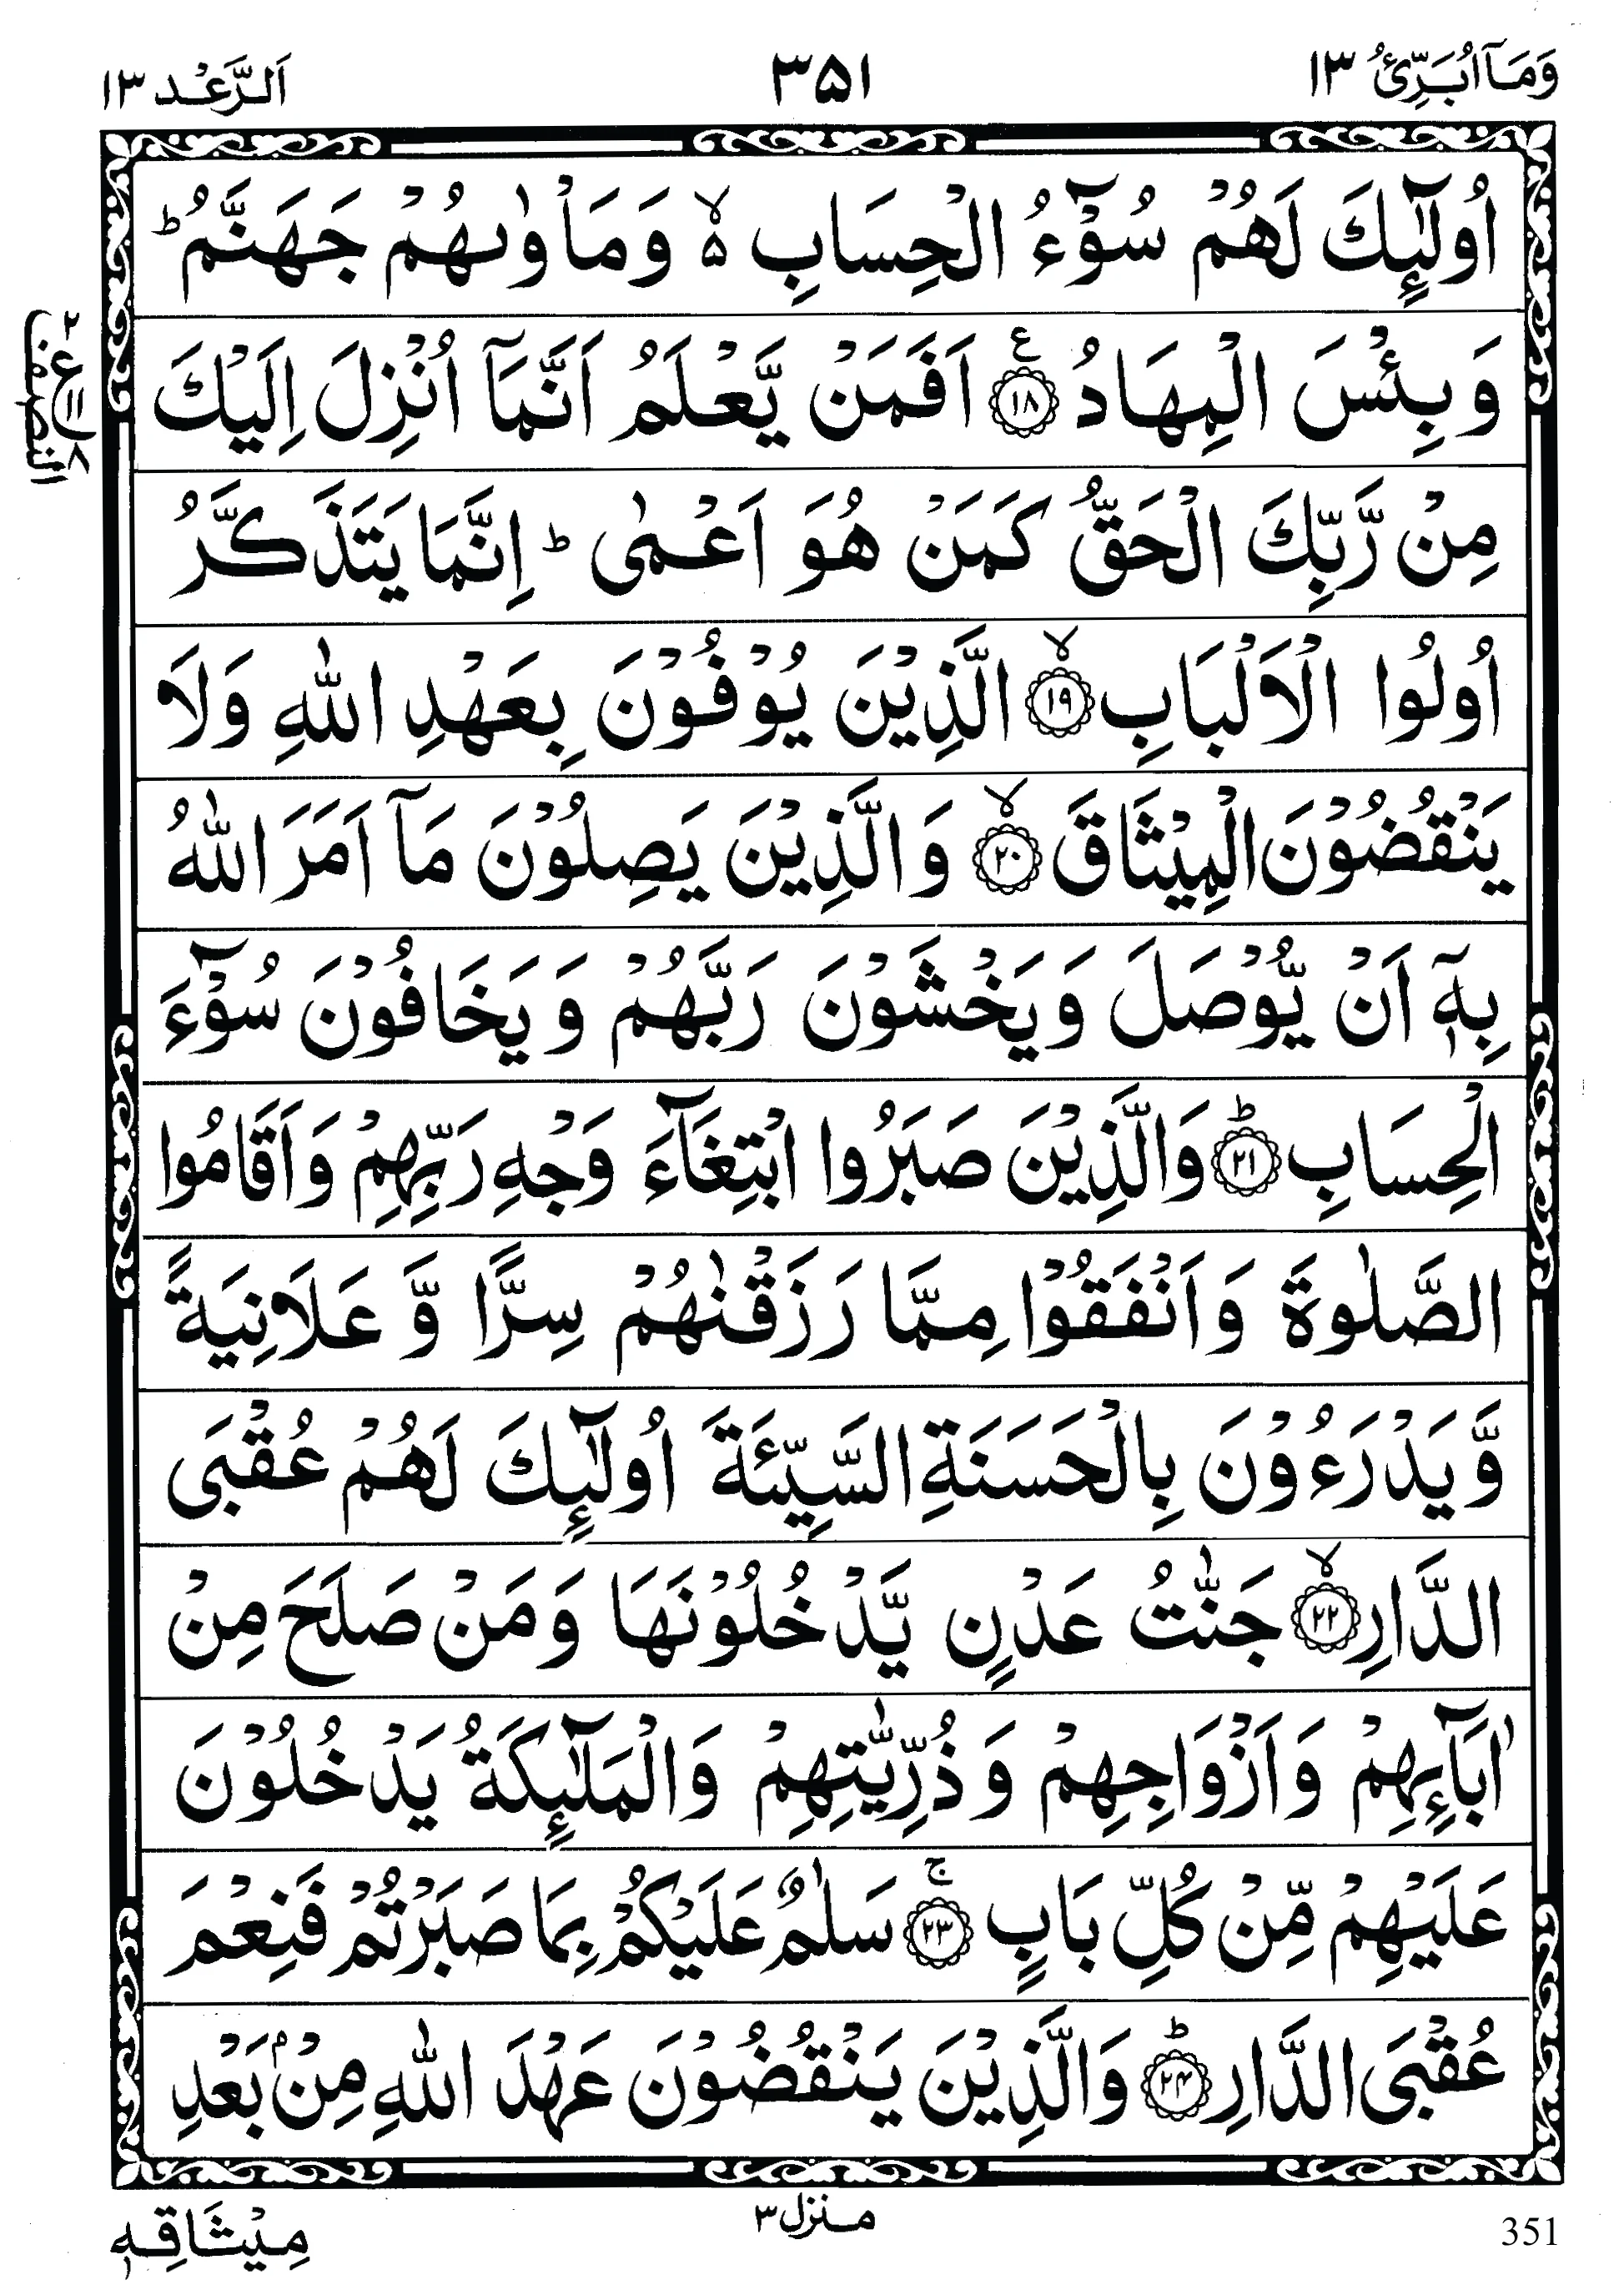 وَمَاۤ اُبَرِّئُ ١٣
٣٥١
اَلرَّعْد ١٣
اُولٰٓئِكَ لَهُمْ سُوْٓءُ الْحِسَابِ ۵ۙ وَمَاْوٰىهُمْ جَهَنَّمُ ؕ
وَبِئْسَ الْمِهَادُ ۧ﴿١٨﴾ اَفَمَنْ يَّعْلَمُ اَنَّمَاۤ اُنْزِلَ اِلَيْكَ
مِنْ رَّبِّكَ الْحَقُّ كَمَنْ هُوَ اَعْمٰى ؕ اِنَّمَا يَتَذَكَّرُ
اُولُوا الْاَلْبَابِ ۙ﴿١٩﴾ الَّذِيْنَ يُوْفُوْنَ بِعَهْدِ اللّٰهِ وَلَا
يَنْقُضُوْنَ الْمِيْثَاقَ ۙ﴿٢٠﴾ وَالَّذِيْنَ يَصِلُوْنَ مَاۤ اَمَرَ اللّٰهُ
بِهٖۤ اَنْ يُّوْصَلَ وَيَخْشَوْنَ رَبَّهُمْ وَيَخَافُوْنَ سُوْٓءَ
الْحِسَابِ ؕ﴿٢١﴾ وَالَّذِيْنَ صَبَرُوا ابْتِغَآءَ وَجْهِ رَبِّهِمْ وَاَقَامُوا
الصَّلٰوةَ وَاَنْفَقُوْا مِمَّا رَزَقْنٰهُمْ سِرًّا وَّ عَلَانِيَةً
وَّيَدْرَءُوْنَ بِالْحَسَنَةِ السَّيِّئَةَ اُولٰٓئِكَ لَهُمْ عُقْبَى
الدَّارِ ۙ﴿٢٢﴾ جَنّٰتُ عَدْنٍ يَّدْخُلُوْنَهَا وَمَنْ صَلَحَ مِنْ
اٰبَآئِهِمْ وَاَزْوَاجِهِمْ وَذُرِّيّٰتِهِمْ وَالْمَلٰٓئِكَةُ يَدْخُلُوْنَ
عَلَيْهِمْ مِّنْ كُلِّ بَابٍ ۚ﴿٢٣﴾ سَلٰمٌ عَلَيْكُمْ بِمَا صَبَرْتُمْ فَنِعْمَ
عُقْبَى الدَّارِ ؕ﴿٢٤﴾ وَالَّذِيْنَ يَنْقُضُوْنَ عَهْدَ اللّٰهِ مِنْۢ بَعْدِ
النصف
ع
مِيْثَاقِهٖ
منزل ٣
351